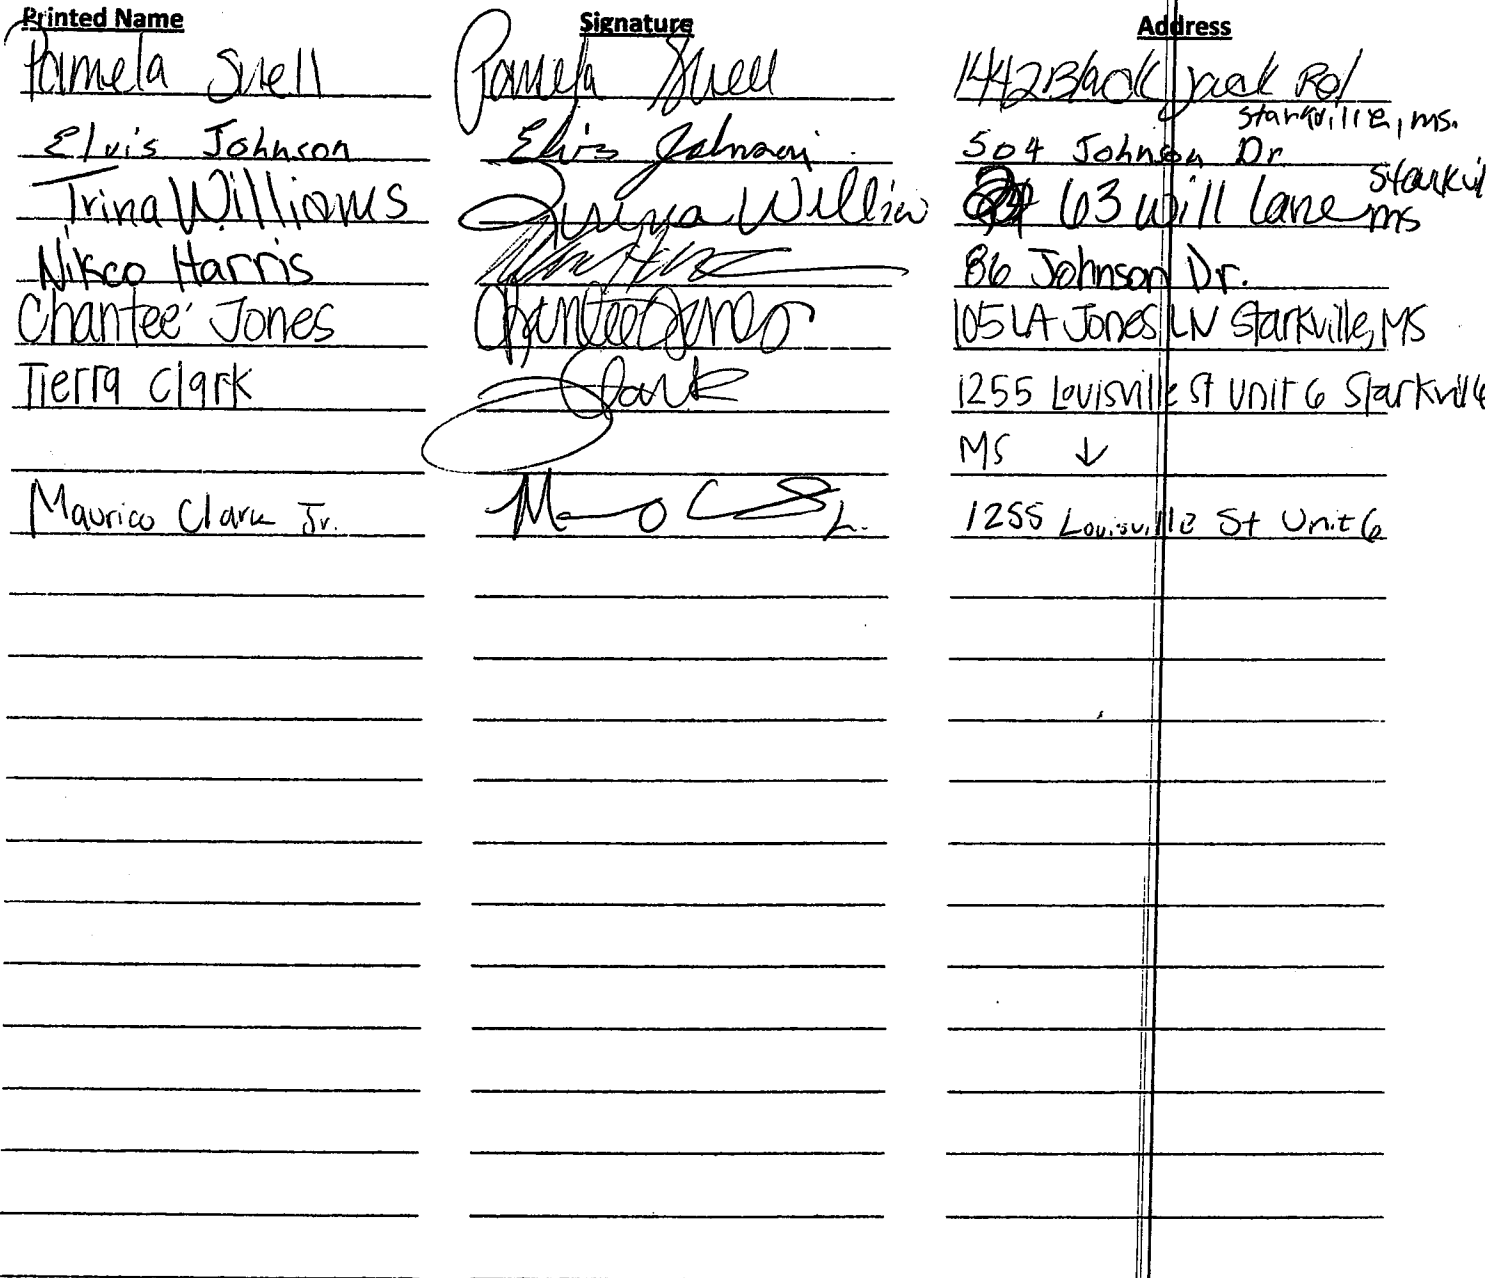 Printed Name Signature Address
Pamela Suell Pamela Suell 1442 Black Jack Rd
Starkville, ms.
Elvis Johnson Elvis Johnson 504 Johnson Dr
Trina Williams Trina Williams 63 Will Lane Starkvil
ms
Nikco Harris 86 Johnson Dr.
Chantee' Jones Chantee Jones 105 LA Jones LN Starkville, MS
Tierra Clark Clark 1255 Louisville St Unit 6 Starkville
MS ↓
Maurico Clark Jr. 1255 Louisville St Unit 6